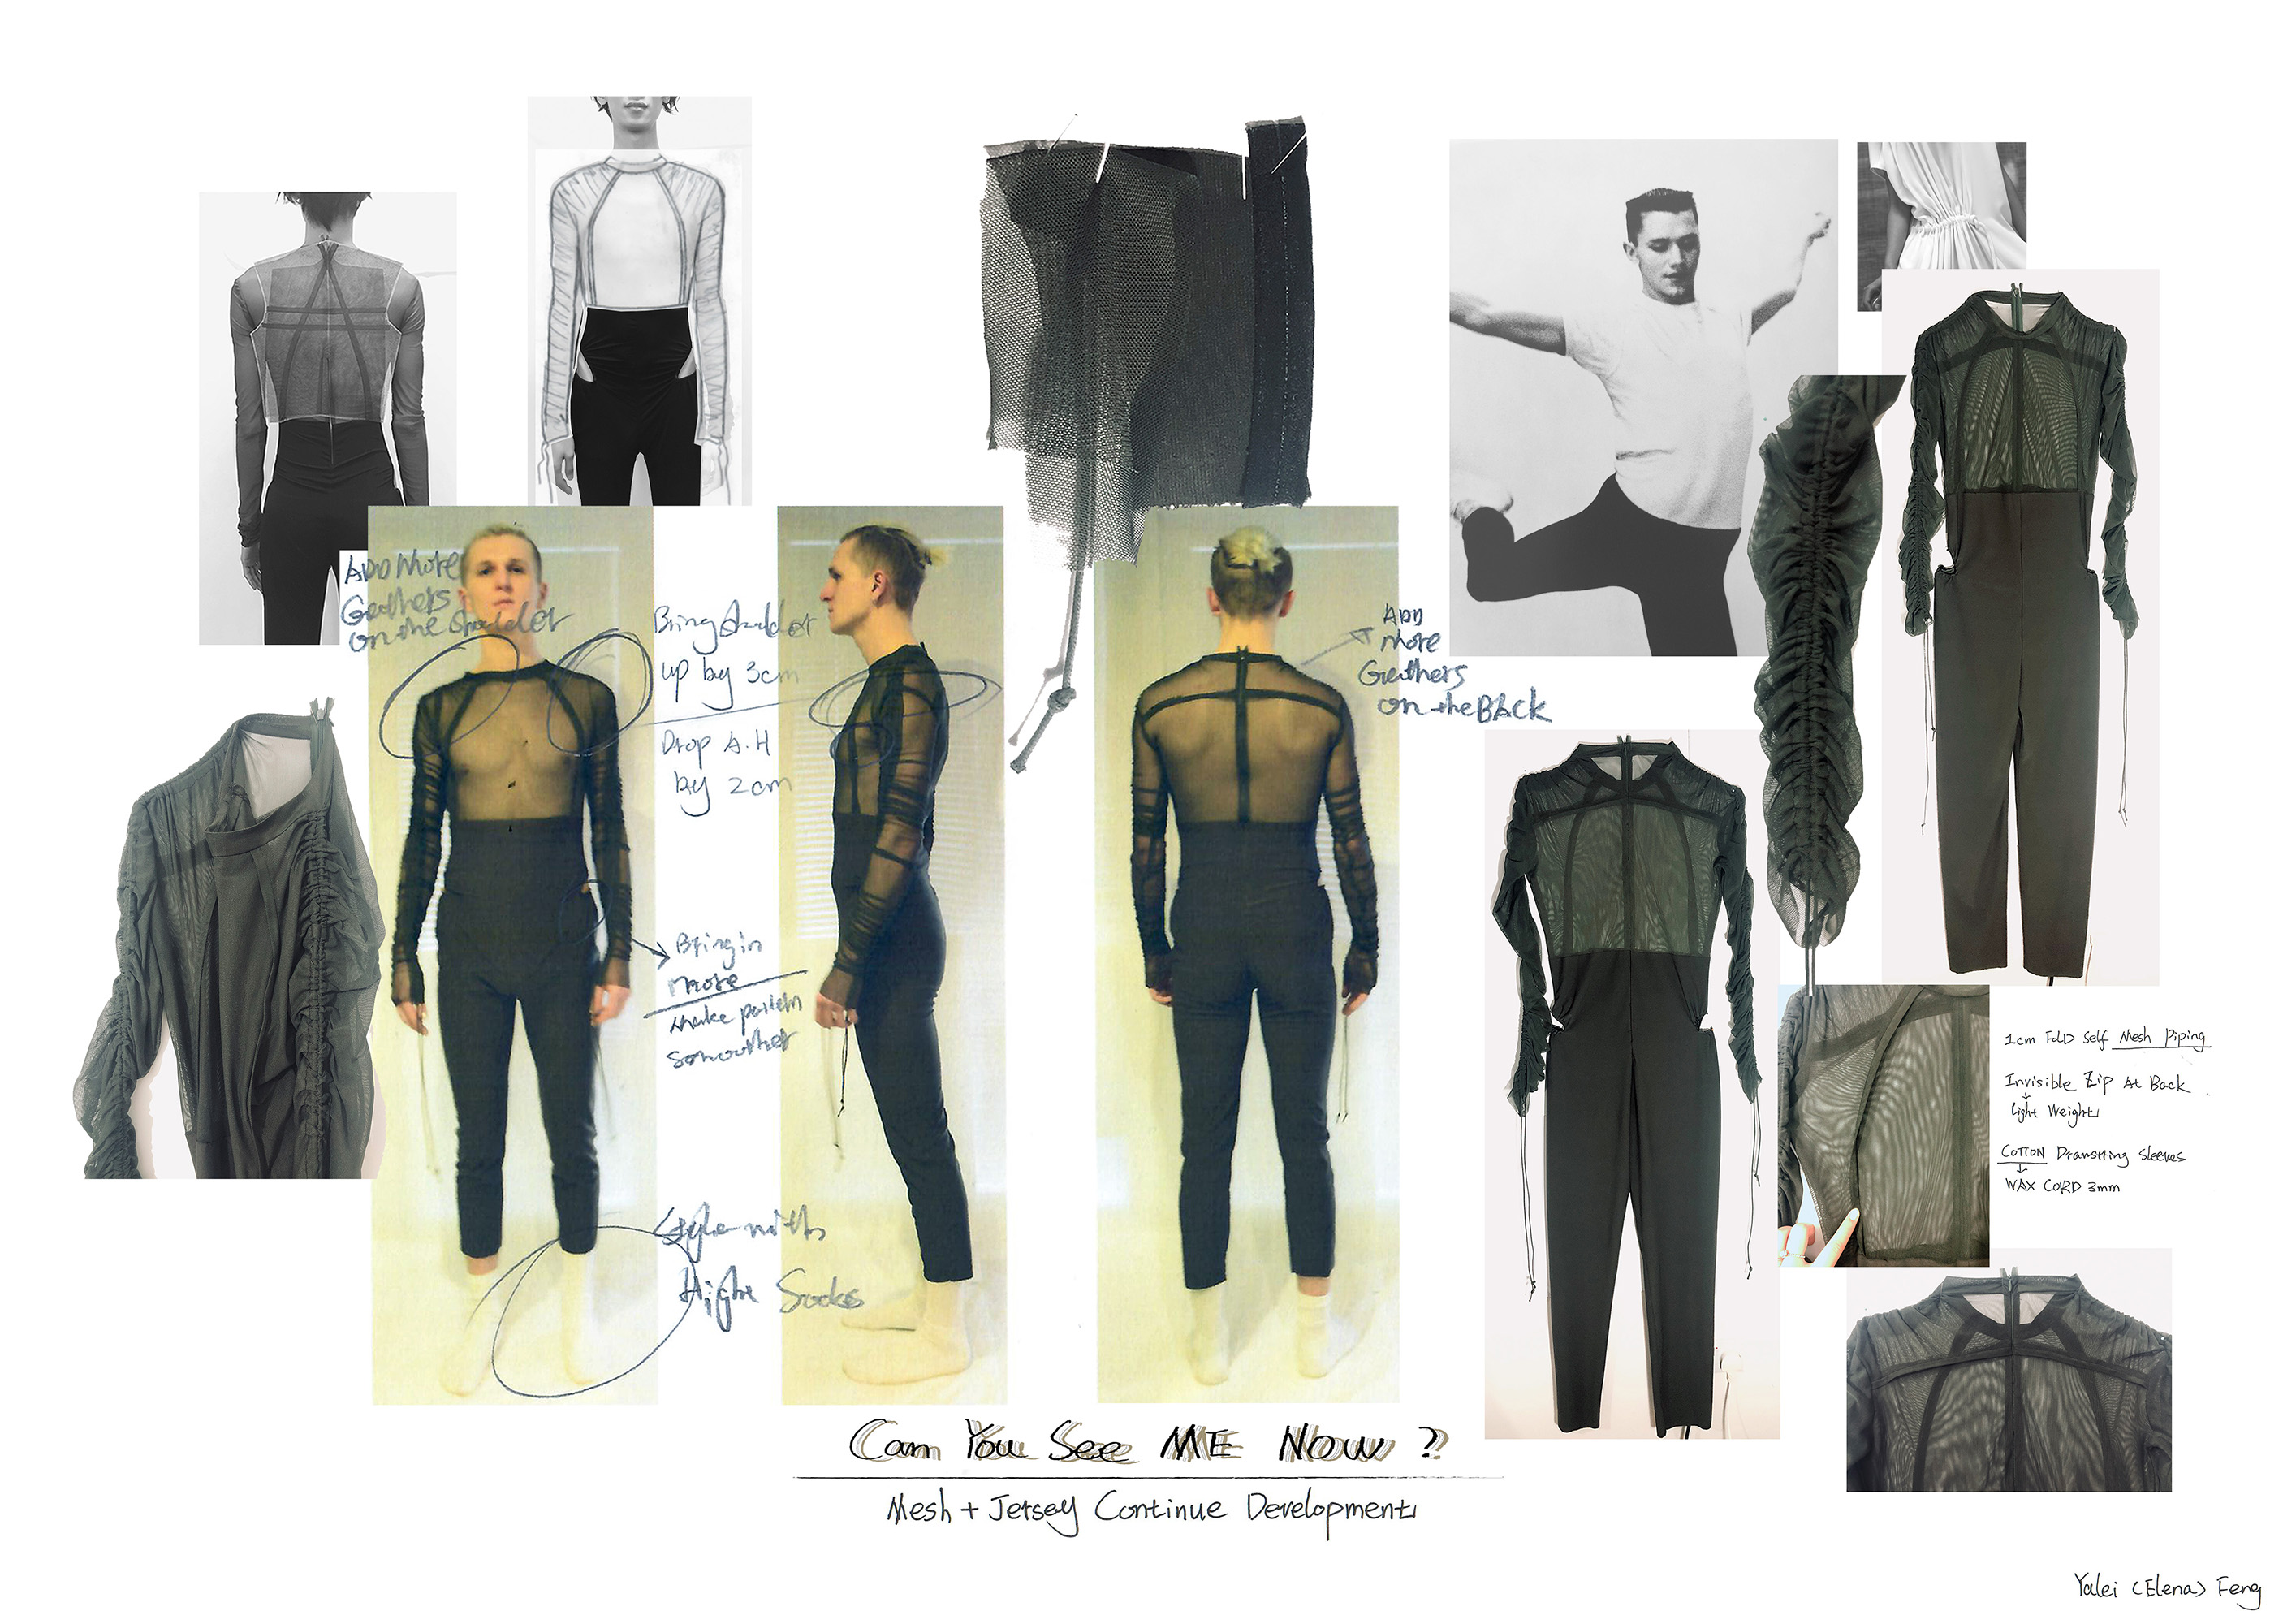 ADD More
Gathers
on the Shoulder
Bring Shoulder
up by 3cm
Drop A.H
by 2cm
ADD
More
Gathers
on the BACK
Bring in
more
Make pattern
smoother
Style with
High Socks
1cm FOLD Self Mesh Piping
Invisible Zip At Back
light Weight
COTTON Drawstring Sleeves
WAX CORD 3mm
Can You See ME Now ?
Mesh + Jersey Continue Development
Yalei (Elena) Feng